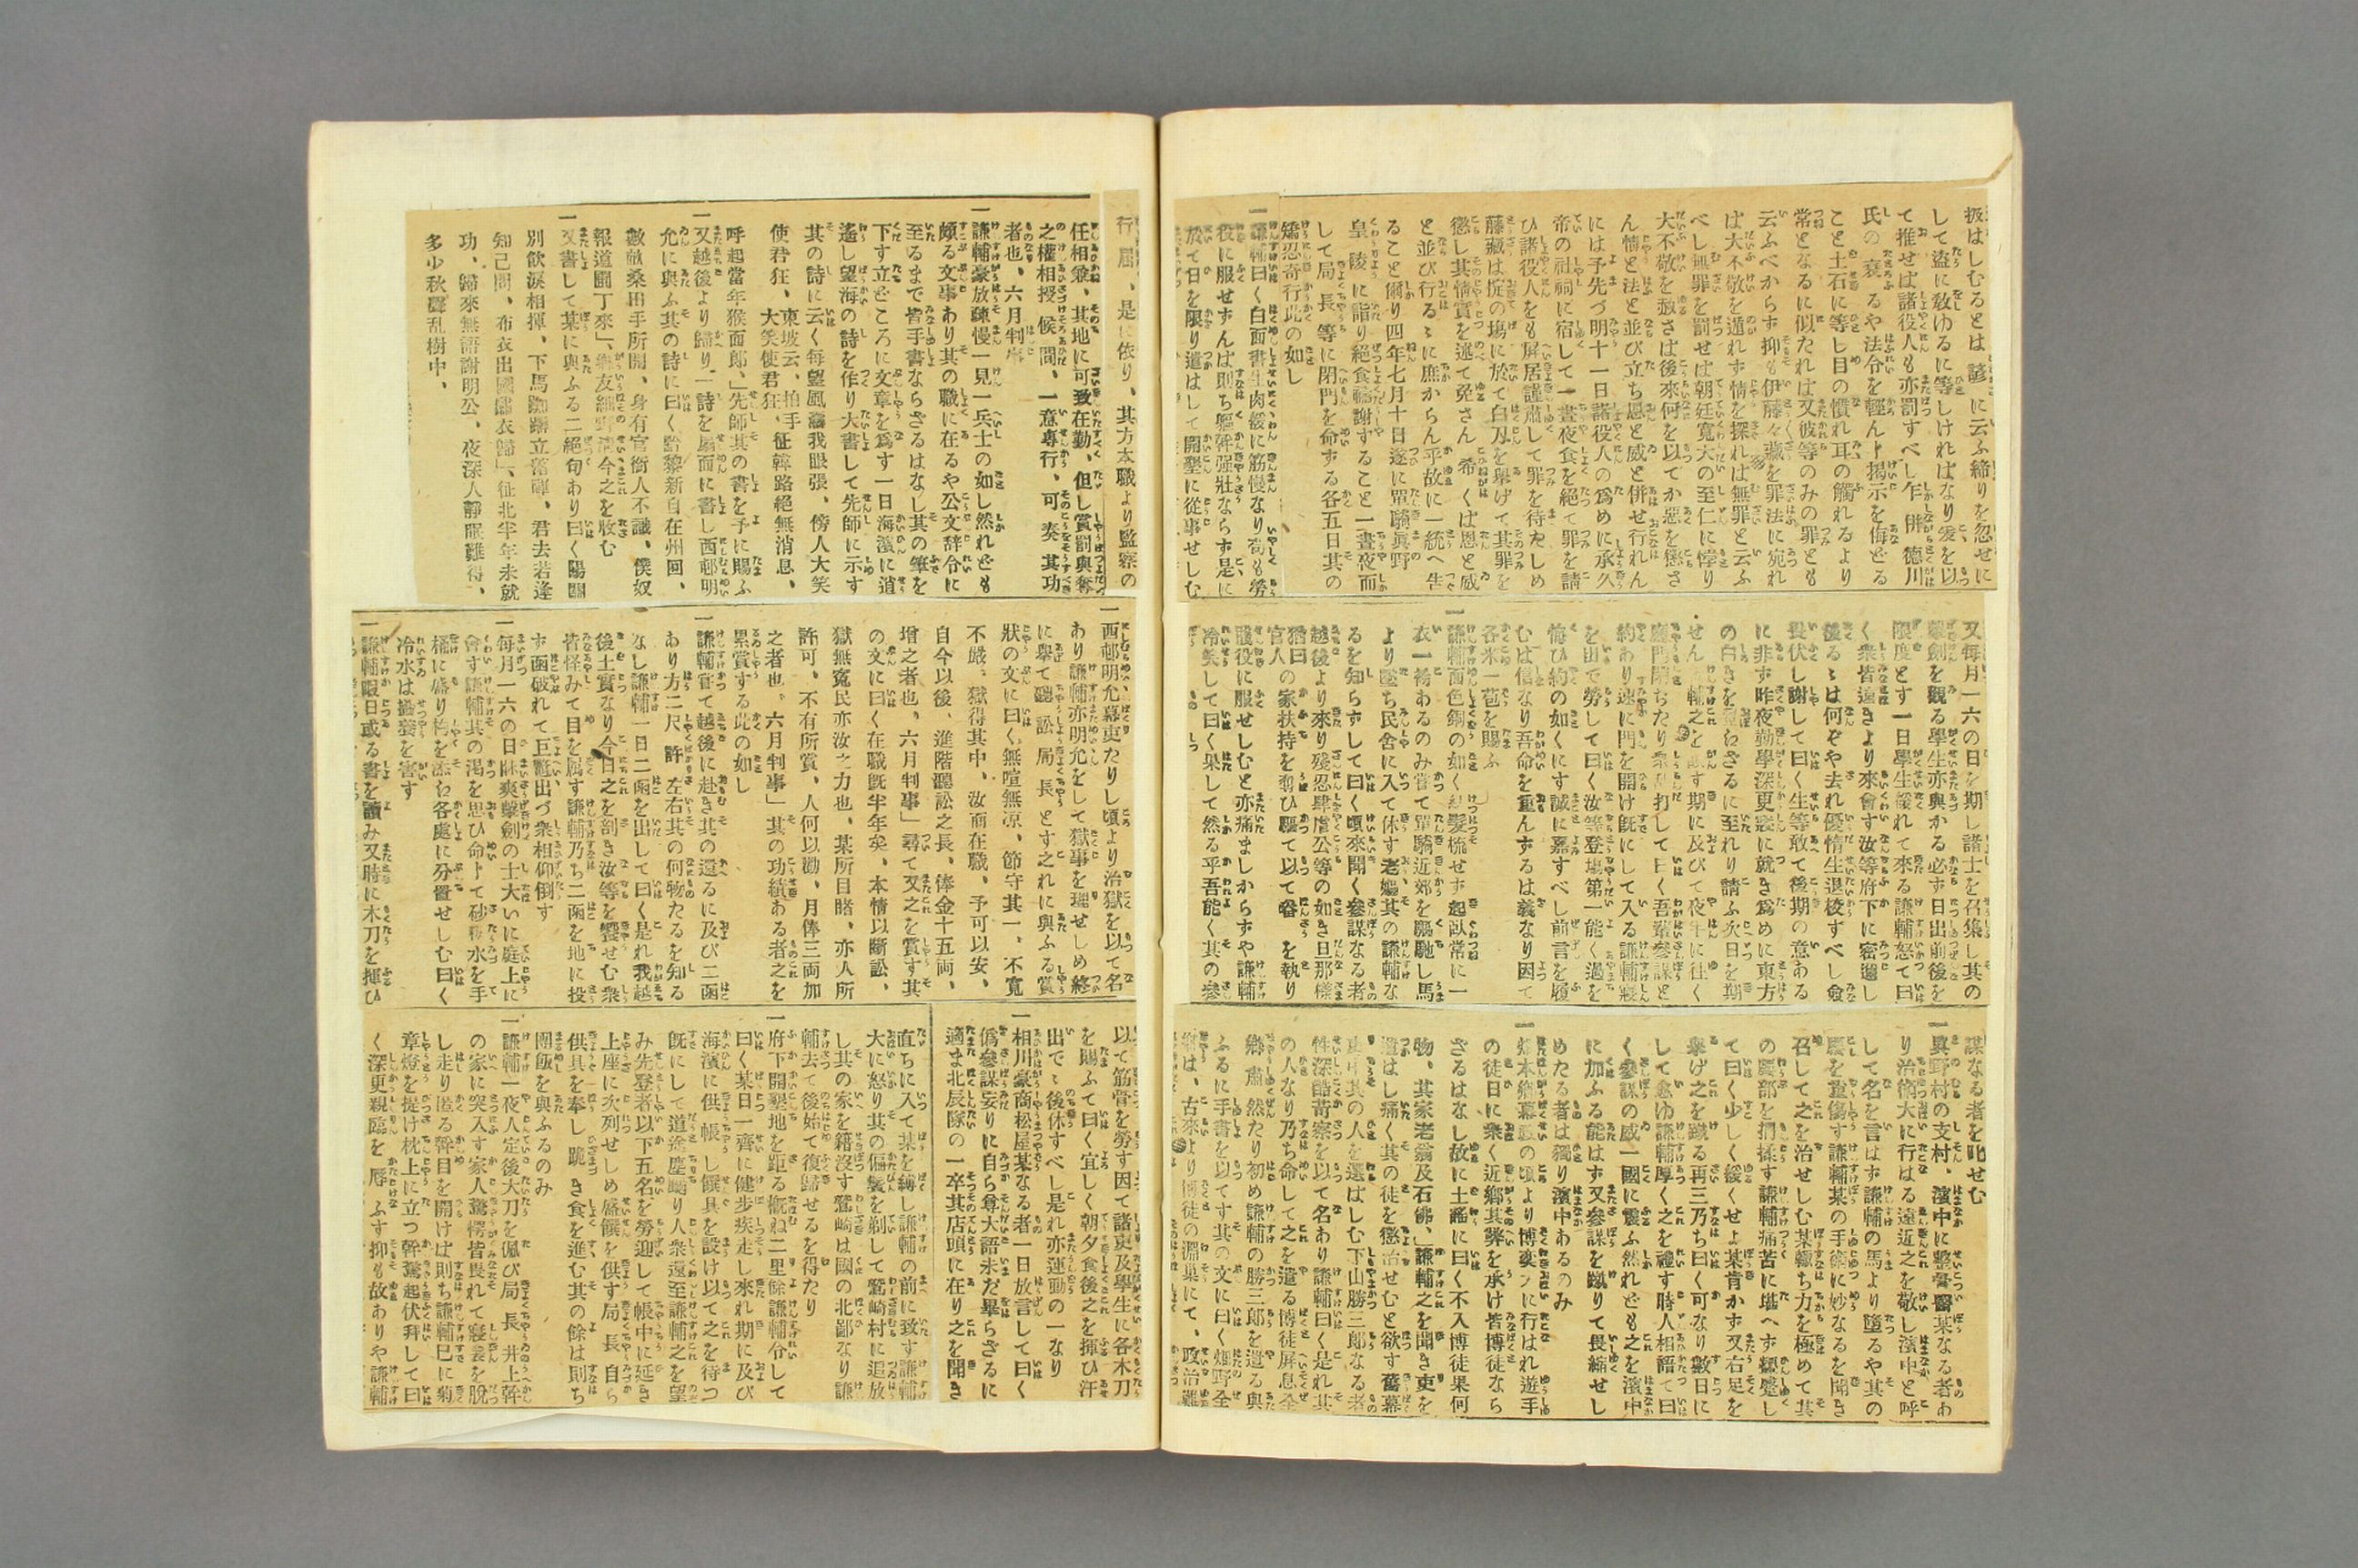 扱はしむるとは諺に云ふ締りを忽せに
して盗に敎ゆるに等しければなり爰を以
て推せば諸役人も亦罰すべし乍併德川
氏の衰るや法令を輕んト揭示を侮どる
こと土石に等し目の慣れ耳の觸れるより
常となるに似たれは又彼等のみの罪とも
云ふべからず抑も伊藤々藏を罪法に宛れ
ば大不敬を遁れず情を探れは無罪と云ふ
べし無罪を罰せは朝廷寛大の至仁に悖り
大不敬を赦さば後來何を以てか惡を懲さ
ん情と法と並び立ち恩と威と併せ行れん
には予先づ明十一日諸役人の爲めに承久
帝の社祠に宿して一晝夜食を絕て罪を請
ひ諸役人をも屏居謹肅して罪を待たしめ
藤藏は掟の塲に於て白刃を擧げて其罪を
懲し其情實を述て免さん希くば恩と威
と並び行るゝに庶からん乎故に一統へ告
ること爾り四年七月十日遂に單騎眞野
皇陵に詣り絕食稽謝すること一晝夜而
して局長等に閉門を命する各五日其の
矯忍奇行此の如し
一謙輔曰く白面書生肉緩に筋慢なり苟も勞
役に服せずんば則ち軀幹强壯ならず是に
於て日を限り遣はして開墾に從事せしむ
又每月一六の日を期し諸士を召集し其の
擊劍を觀る學生亦與かる必ず日出前後を
限度とす一日學生緩れて來る謙輔怒て曰
く衆皆遠きより來會す汝等府下に密邇し
後るゝは何ぞや去れ優惰生退校すべし僉
畏伏し謝して曰く生等敢て後期の意ある
に非ず昨夜勤學深更寢に就き爲めに東方
の白きを
ざるに至れり請ふ次日を期
せん
輔之を
す期に及びて夜半に往く
門閉ちたり衆
打して曰く吾輩參謀と
約あり速に門を開け旣にして入る謙輔寢
を出で勞して曰く汝等登塲第一能く過を
悔ひ約の如くにす誠に嘉すべし前言を履
むは信なり吾命を重んずるは義なり因て
各米一苞を賜ふ
一謙輔面色銅の如く
髮梳せず起臥常に一
衣一袴あるのみ嘗て單騎近郊を驅馳し馬
より墜ち民舍に入て休す老嫗其の謙輔な
るを知らずして曰く頃來聞く參謀なる者
越後より來り殘忍肆虐公等の如き旦那樣
官人の家扶持を奪ひ驅て以て畚を執り
猶曰
役に服せしむと亦痛ましからずや謙輔
冷笑して曰く果して然る乎吾能く其の參
謀なる者を叱せむ
一眞野村の支村、濱中に整骨醫某なる者あ
り治術大に行はる遠近之を敬し濱中と呼
して名を言はず謙輔の馬より墮るや其の
腰を重傷す謙輔某の手術に妙なるを聞き
召して之を治せしむ某輙ち力を極めて其
の腰部を捫揉す謙輔痛苦に堪へず顰蹙し
て曰く少しく緩くせよ某肯かず又右足を
擧げ之を蹴る再三乃ち曰く可なり數日に
して愈ゆ謙輔厚く之を禮す時人相語て曰
く參謀の威一國に震ふ然れども之を濱中
に加ふる能はず又參謀を蹴りて畏縮せし
めたる者は獨り濱中あるのみ
一畑本鄕幕
の頃より博奕大に行はれ遊手
の徒日に衆く近鄕其弊を承け皆博徒なら
ざるはなし故に土謠に曰く不入博徒果何
物、其家老翁及石佛、」謙輔之を聞き吏を
遣はし痛く其の徒を懲治せむと欲す舊幕
吏中其の人を選はしむ下山勝三郎なる者
性深酷苛察を以て名あり謙輔曰く是れ其
の人なり乃ち命して之を遣る博徒屏息全
鄕肅然たり初め謙輔の勝三郎を遣る與
ふるに手書を以てす其の文に曰く畑野全
鄕は、古來より博徒の淵巢にて、政治難
行屆、是に依り、其方本職より監察の
任相兼、其地に可致在勤、但し賞罰與奪
之權相授候間、一意專行、可奏其功
者也、六月判
一謙輔豪放疎慢一見一兵士の如し然れども
頗る文事あり其の職に在るや公文辞令に
至るまで皆手書ならざるはなし其の筆を
下す立どころに文章を爲す一日海濱に逍
遙し望海の詩を作り大書して先師に示す
其の詩に云く每望風濤我眼張、傍人大笑
使君狂、東坡云、拍手大笑使君狂、征韓路絕無消息、
呼起當年猴面郎、」先師其の書を予に賜ふ
一又越後より歸り一詩を扇面に書し西邨明
允に與ふ其の詩に曰く黔黎新自在州回、
數畝桑田手所開、身有官銜人不識、僕奴
報道園丁來」、
友
今之を收む
一又書して某に與ふる二絕句あり曰く陽關
別飮淚相揮、下馬踟蹰立落暉、君去若逢
知己問、布衣出國儒衣歸」、征北半年未就
功、歸來無語謝明公、夜深人靜眠難得、
多少秋聲乱樹中、
一西邨明允幕吏たりし頃より治獄を以て名
あり謙輔亦明允をして獄事を理せしめ終
に擧て聽訟局長とす之れに與ふる賞
狀の文に曰く無喧無凉、節守其一、不寬
不嚴、獄得其中、汝而在職、予可以安、
自今以後、進階聽訟之長、俸金十五両、
增之者也、六月判事」尋て又之を賞す其
の文に曰く在職旣半年矣、本情以斷訟、
獄無寃民亦汝之力也、某所目睹、亦人所
許可、不有所賞、人何以勸、月俸三両加
之者也。六月判事」其の功績ある者之を
累賞する此の如し
一謙輔嘗て越後に赴き其の還るに及び二函
あり方二尺許左右其の何物たるを知る
なし謙輔一日二函を出して曰く是れ我越
後土實なり今日之を剖き汝等を饗せむ衆
皆怪みて目を属す謙輔乃ち二函を地に投
ず函破れて巨
出づ衆相仰倒す
一每月一六の日昧爽擊劍の士大いに庭上に
會す謙輔其の渴を思ひ命トて砂糖水を手
桶に盛り杓を添ね各處に分置せしむ曰く
冷水は攝養を害す
一謙輔暇日或る書を讀み又時に木刀を揮ひ
以て筋骨を勞す因て諸吏及學生に各木刀
を賜ふて曰く宜しく朝夕食後之を揮ひ汗
出でゝ後休すべし是れ亦運動の一なり
一相川豪商松屋某なる者一日放言して曰く
僞參謀妄りに自ら尊大語未だ畢らざるに
適ま北辰隊の一卒其店頭に在り之を聞き
直ちに入て某を縛し謙輔の前に致す謙輔
大に怒り其の偏鬢を剃して鷲崎村に追放
し其の家を籍沒す鷲崎は國の北鄙なり謙
輔去て後始て復歸せるを得たり
一府下開墾地を距る概ね二里餘謙輔令して
曰く某日一齊に健步疾走し來れ期に及び
海濱に供帳し饌具を設け以て之を待つ
旣にして道塗塵颺り人衆遠至謙輔之を望
み先登者以下五名を勞迎して帳中に延き
上座に次列せしめ盛饌を供す局長自ら
供具を奉し跪き食を進む其の餘は則ち
團飯を與ふるのみ
一謙輔一夜人定後大刀を佩び局長井上幹
の家に突入す家人驚愕皆畏れて寢裳を脫
し走り匿る幹目を開けば則ち謙輔巳に菊
章燈を提げ枕上に立つ幹驚起伏拜して曰
く深更親臨を辱ふす抑も故ありや謙輔